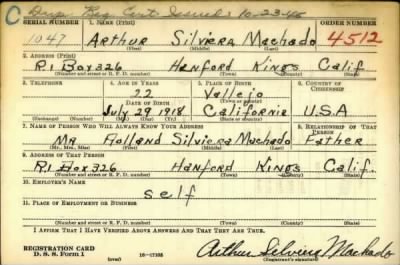 C Dup. Reg. Cert. Issued: 10-23-45
SERIAL NUMBER 1. NAME (Print) ORDER NUMBER
1047 Arthur Silviera Machado 4512
(First) (Middle) (Last)
2. ADDRESS (Print)
R1 Box 326 Hanford Kings Calif.
(Number and street or R. F. D. number) (Town) (County) (State)
3. TELEPHONE 4. AGE IN YEARS 5. PLACE OF BIRTH 6. COUNTRY OF CITIZENSHIP
22 Vallejo
DATE OF BIRTH (Town or county)
July 29 1918 California U.S.A
(Exchange) (No.) (Mo.) (Day) (Yr.) (State or country)
7. NAME OF PERSON WHO WILL ALWAYS KNOW YOUR ADDRESS 8. RELATIONSHIP OF THAT PERSON
Mr Holland Silviera Machado Father
(Mr., Mrs., Miss) (First) (Middle) (Last)
9. ADDRESS OF THAT PERSON
R1 Box 326 Hanford Kings Calif.
(Number and street or R. F. D. number) (Town) (County) (State)
10. EMPLOYER'S NAME
Self
11. PLACE OF EMPLOYMENT OR BUSINESS
(Number and street or R. F. D. number) (Town) (County) (State)
I AFFIRM THAT I HAVE VERIFIED ABOVE ANSWERS AND THAT THEY ARE TRUE.
REGISTRATION CARD
D. S. S. Form 1 (over) 16-17105 Arthur Silviera Machado
(Registrant's signature)